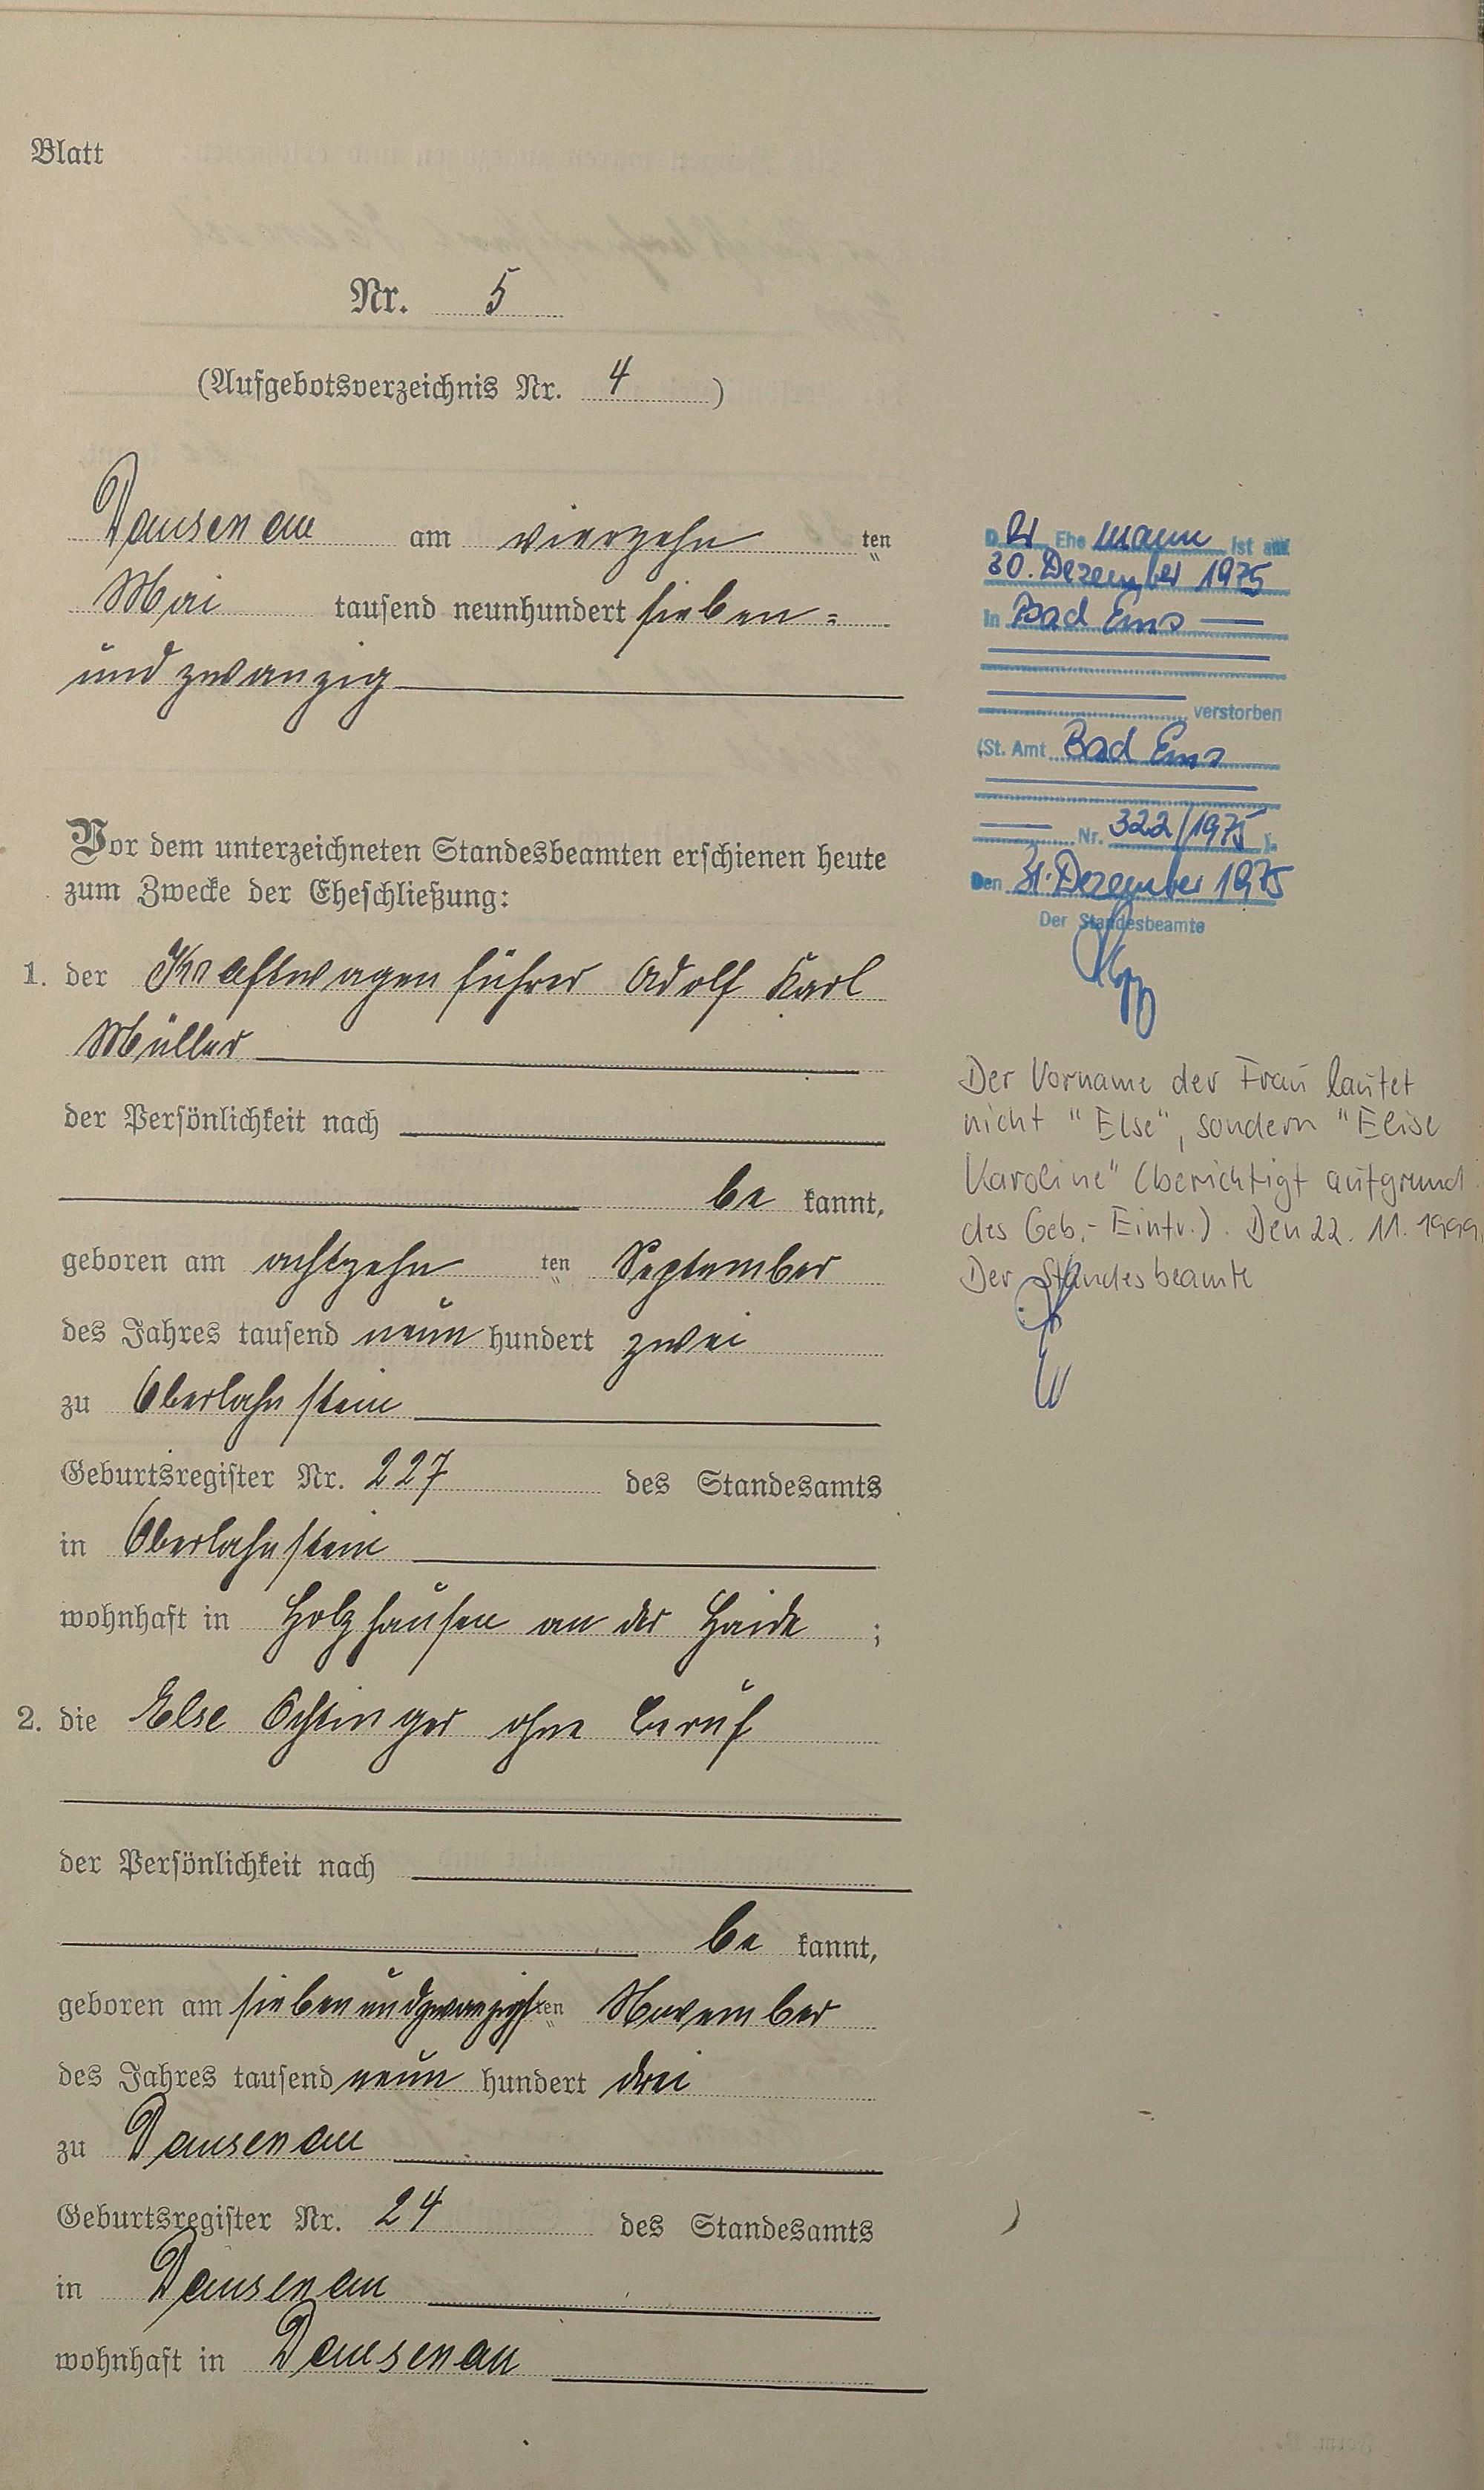 Blatt
Nr. 5
(Aufgebotsverzeichnis Nr. 4)
Dausenau am vierzehn ten
Mai tausend neunhundert sieben=
und zwanzig
Vor dem unterzeichneten Standesbeamten erschienen heute
zum Zwecke der Eheschließung:
1. der Kraftwagenführer Adolf Karl
Müller
der Persönlichkeit nach
be kannt,
geboren am achtzehn ten September
des Jahres tausend neun hundert zwei
zu Oberlahnstein
Geburtsregister Nr. 227 des Standesamts
in Oberlahnstein
wohnhaft in Holzhausen an der Haide ;
2. die Else Ochtinger ohne Beruf
der Persönlichkeit nach
be kannt,
geboren am siebenundzwanzigsten November
des Jahres tausend neun hundert drei
zu Dausenau
Geburtsregister Nr. 24 des Standesamts
in Dausenau
wohnhaft in Dausenau
Der Ehemann ist am
30. Dezember 1975
in Bad Ems
verstorben
(St. Amt Bad Ems
Nr. 322/1975).
Den 31. Dezember 1975
Der Standesbeamte
Der Vorname der Frau lautet
nicht "Else", sondern "Elise
Karoline" (berichtigt aufgrund
des Geb.-Eintr.). Den 22. 11. 1999.
Der Standesbeamte